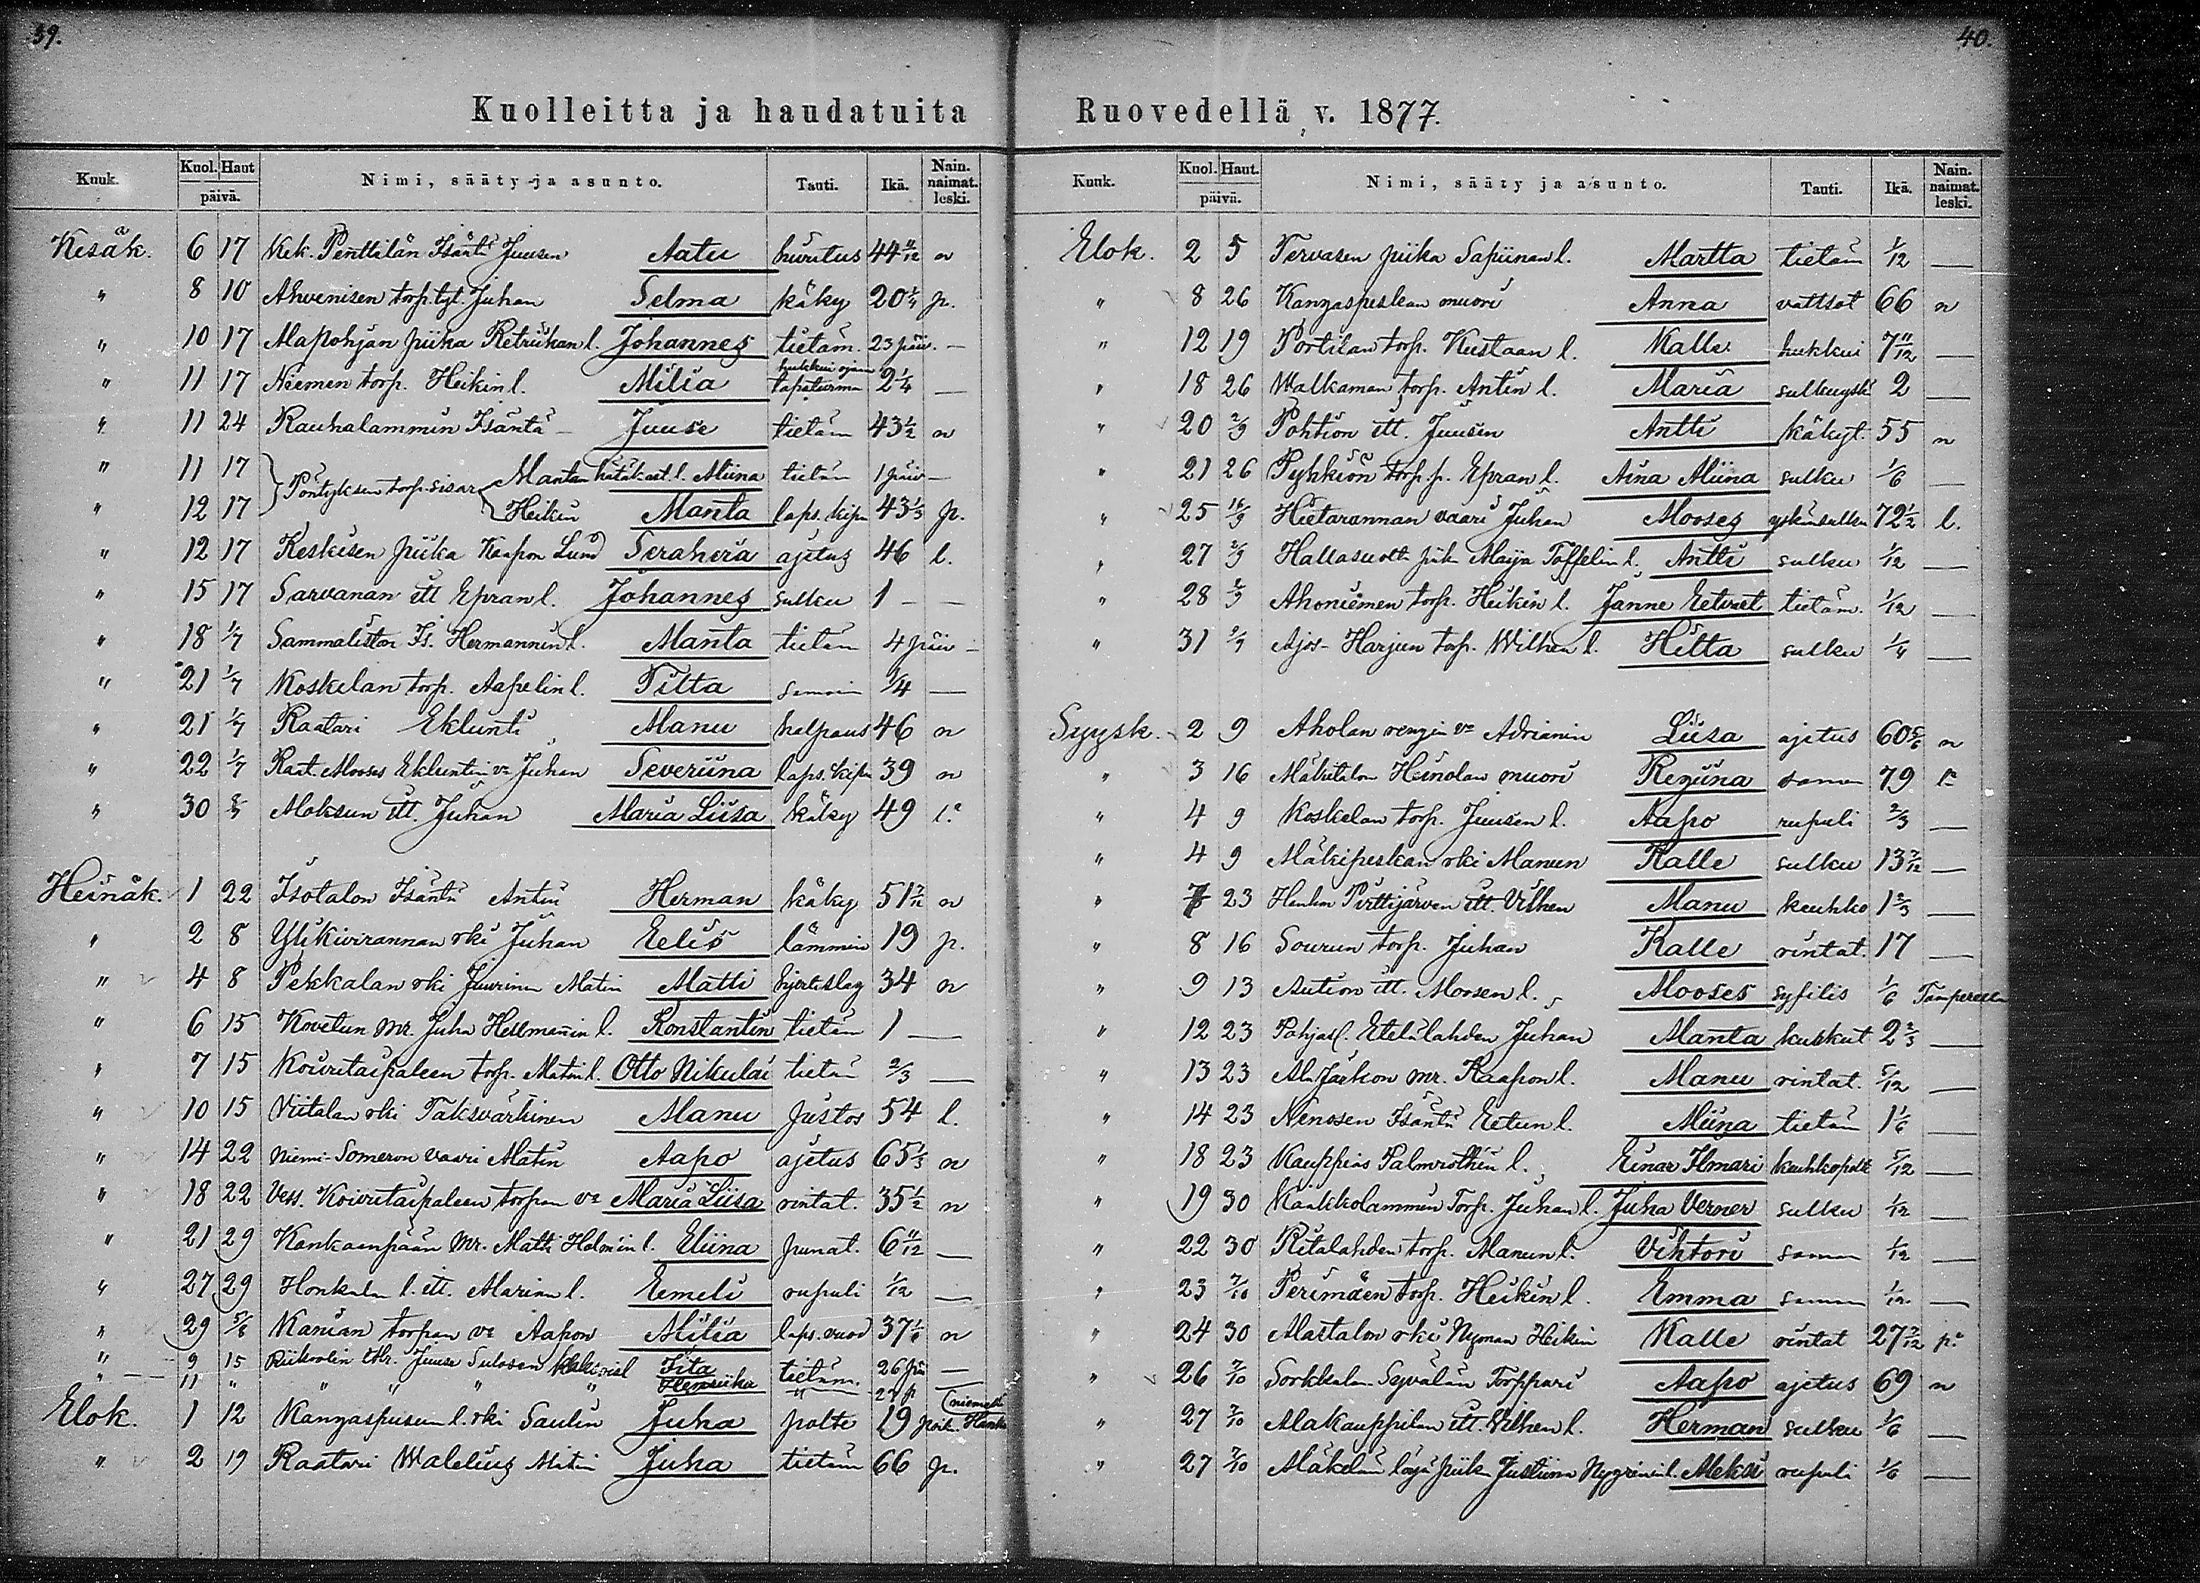 39.
Kuolleitta ja haudatuita
Kuuk. Kuol. Haut päivä. Nimi, sääty ja asunto. Tauti. Ikä. Nain. naimat. leski.
Kesäk. 6 17 Kek. Penttilän Isäntä Juusen Aatu kuritus 44 11/12 n
" 8 10 Ahvenisen torp. tyt. Juhan Selma käky 20 1/4 p.
" 10 17 Alapohjan piika Retriikan l. Johannes tietäm. 23 päiv. —
" 11 17 Niemen torp. Heikin l. Milia hukkui ojaan tapaturma 2 1/4 —
" 11 24 Rauhalammin Isäntä — Juuse tietäm 43 1/2 n
" 11 17 Pöntyksen torp. sisar Mantan hätäkast. l. Miina tietäm 1 päiv —
" 12 17 Heikin Manta laps. kipu 43 1/3 p.
" 12 17 Keskisen piika Kaapon Lund Seraheria ajetus 46 l.
" 15 17 Sarvanan itt Epran l. Johannes sulku 1 — —
" 18 1/7 Sammaliston Is. Hermannin l. Manta tietäm 4 päiv —
" 21 1/7 Koskelan torp. Aapelin l. Tilta samoin 3/4 —
" 21 1/7 Raatari Eklunti Manu halpaus 46 n
" 22 1/7 Raat. Mooses Ekluntin va Juhan Severiina laps. kipu 39 n
" 30 8/7 Moksun itt. Juhan Maria Liisa käky 49 l.
Heinäk. 1 22 Isotalon Isäntä Antin Herman käky 51 7/12 n
" 2 8 Ylikivirannan rki Juhan Eelis lämmin 19 p.
" 4 8 Pekkalan rki Juurinen Matin Matti hjertslag 34 n
" 6 15 Kovetun mr. Juha Hellmanin l. Konstantin tietäm 1 —
" 7 15 Koivutaipaleen torp. Matin l. Otto Nikulai tietäm 2/3 —
" 10 15 Viitalan rki Taksvärkinen Manu Justos 54 l.
" 14 22 Niemi-Someron vaari Matin Aapo ajetus 65 1/3 n
" 18 22 Vess. Koivutaipaleen torpan va Maria Liisa rintat. 35 1/2 n
" 21 29 Kankaanpään mr. Matti Holmin l. Eliina punat. 6 11/12 —
" 27 29 Honkalan l. itt. Marian l. Eemeli rupuli 1/12 —
" 29 5/8 Kanian torpan va Aapon Milia laps. vuod 37 1/6 n
" 9 15 Juuse Sulosen Iita tietäm. 26 päi —
" 11 " " " " " Henriika " 27 p —
Elok. 1 12 Kangaspusun l. rki Saulin Juha polte 19
" 2 19 Raatari Walelius Matin Juha tietäm 66 p.
40.
Ruovedellä v. 1877.
Kuuk. Kuol. Haut. päivä. Nimi, sääty ja asunto. Tauti. Ikä. Nain. naimat. leski.
Elok. 2 5 Tervasen piika Sapiinan l. Martta tietäm 1/12 —
" 8 26 Kangaspeskan muori Anna vattsat 66 n
" 12 19 Pörtilan torp. Kustaan l. Kalle hukkui 7 11/12 —
" 18 26 Walkaman torp. Antin l. Maria sulkuyskä 2 —
" 20 2/9 Pohtion itt. Juusen Antti käkyt. 55 n
" 21 26 Pyhkiön torp. p. Epran l. Aina Miina sulku 1/6 —
" 25 16/9 Hietarannan vaari Juhan Mooses yskänsulku 72 1/2 l.
" 27 2/9 Hallasuott piik Maija Toffelin l. Antti sulku 1/12 —
" 28 2/9 Ahoniemen torp. Heikin l. Janne Eetvet tietäm. 1/12 —
" 31 2/9 Ajos-Harjun torp. Wilhen l. Hilta sulku 1/4 —
Syysk. 2 9 Aholan rengin va Adrianin Liisa ajetus 60 5/6 n
" 3 16 Mäkitalon Heinolan muori Regiina saman 79 l.
" 4 9 Koskelan torp. Juusen l. Aapo rupuli 2/3 —
" 4 9 Mäkipeskan rki Manun Kalle sulku 13 7/12 —
" 7 23 Pirttijärven itt. Vilhen Manu keuhko 1 2/3 —
" 8 16 Sourun torp. Juhan Kalle rintat. 17 —
" 9 13 Aution itt. Moosen l. Mooses syfilis 1/6 Tampereella
" 12 23 Pohjasl. Eteläлahden Juhan Manta kurkut 2 2/3 —
" 13 23 Ala Jäskön mr. Kaapon l. Manu rintat. 5/12 —
" 14 23 Nenosen Isäntä Eetun l. Miina tietäm 1 1/6 —
" 18 23 Kauppias Palmrothin l. Einar Ilmari keuhkopolt 5/12 —
" 19 30 Kaakkolammin Torp. Juhan l. Juha Verner sulku 1/12 —
" 22 30 Ritalahden torp. Manun l. Vihtori saman 1/12 —
" 23 7/10 Perimäen torp. Heikin l. Emma saman 1/12 —
" 24 30 Alastalon rki Nyman Heikin Kalle rintat 27 7/12 p.
" 26 7/10 Sorkkalan Syvälän Torppari Aapo ajetus 69 n
" 27 7/10 Alakauppilan itt. Vilhen l. Herman sulku 1/6 —
" 27 7/10 Mäkelän löysä piik Justiina Nygrenin l. Aleksi rupuli 1/6 —